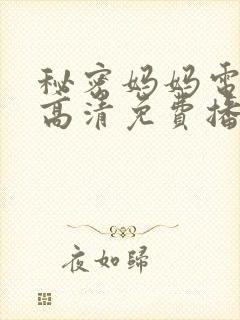 秘密妈妈电
高清免费播
夜如歸